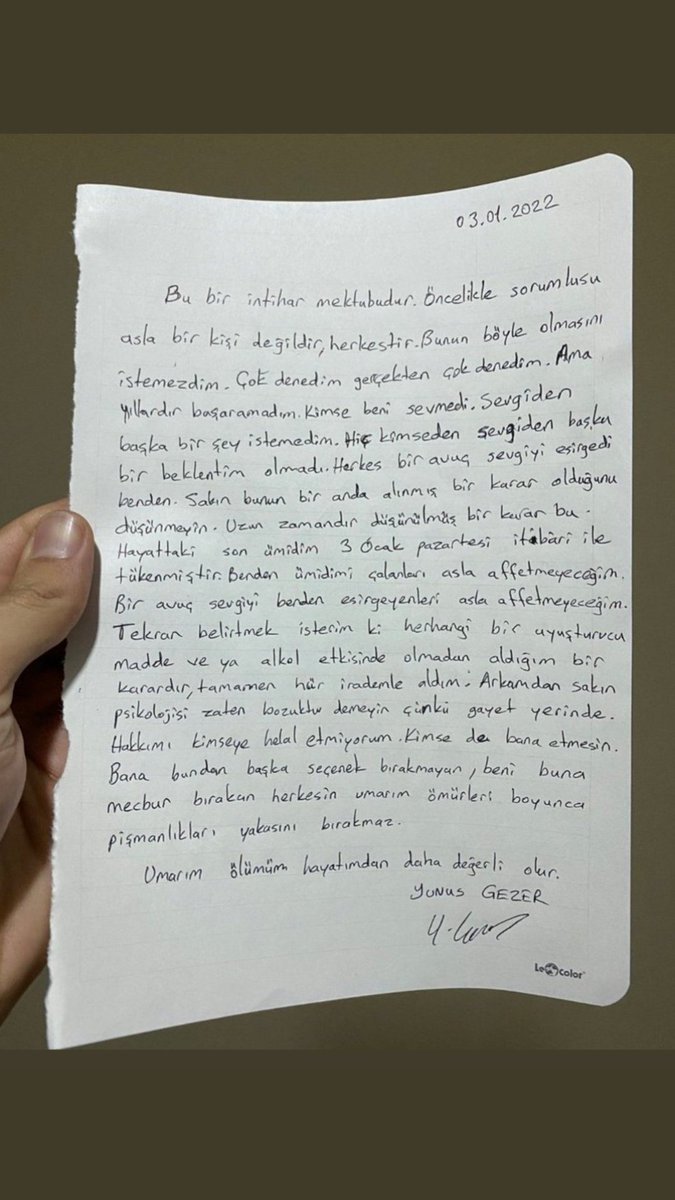 03.01.2022
Bu bir intihar mektubudur. Öncelikle sorumlusu
asla bir kişi değildir, herkestir. Bunun böyle olmasını
istemezdim. Çok denedim gerçekten çok denedim. Ama
yıllardır başaramadım. Kimse beni sevmedi. Sevgiden
başka bir şey istemedim. Hiç kimseden sevgiden başka
bir beklentim olmadı. Herkes bir avuç sevgiyi esirgedi
benden. Sakın bunun bir anda alınmış bir karar olduğunu
düşünmeyin. Uzun zamandır düşünülmüş bir karar bu.
Hayattaki son ümidim 3 Ocak pazartesi itibari ile
tükenmiştir. Benden ümidimi çalanları asla affetmeyeceğim.
Bir avuç sevgiyi benden esirgeyenleri asla affetmeyeceğim.
Tekrar belirtmek isterim ki herhangi bir uyuşturucu
madde ve ya alkol etkisinde olmadan aldığım bir
karardır, tamamen hür irademle aldım. Arkamdan sakın
psikolojisi zaten bozuktu demeyin çünkü gayet yerinde.
Hakkımı kimseye helal etmiyorum. Kimse de bana etmesin.
Bana bundan başka seçenek bırakmayan, beni buna
mecbur bırakan herkesin umarım ömürleri boyunca
pişmanlıkları yakasını bırakmaz.
Umarım ölümüm hayatımdan daha değerli olur.
YUNUS GEZER
Le Color